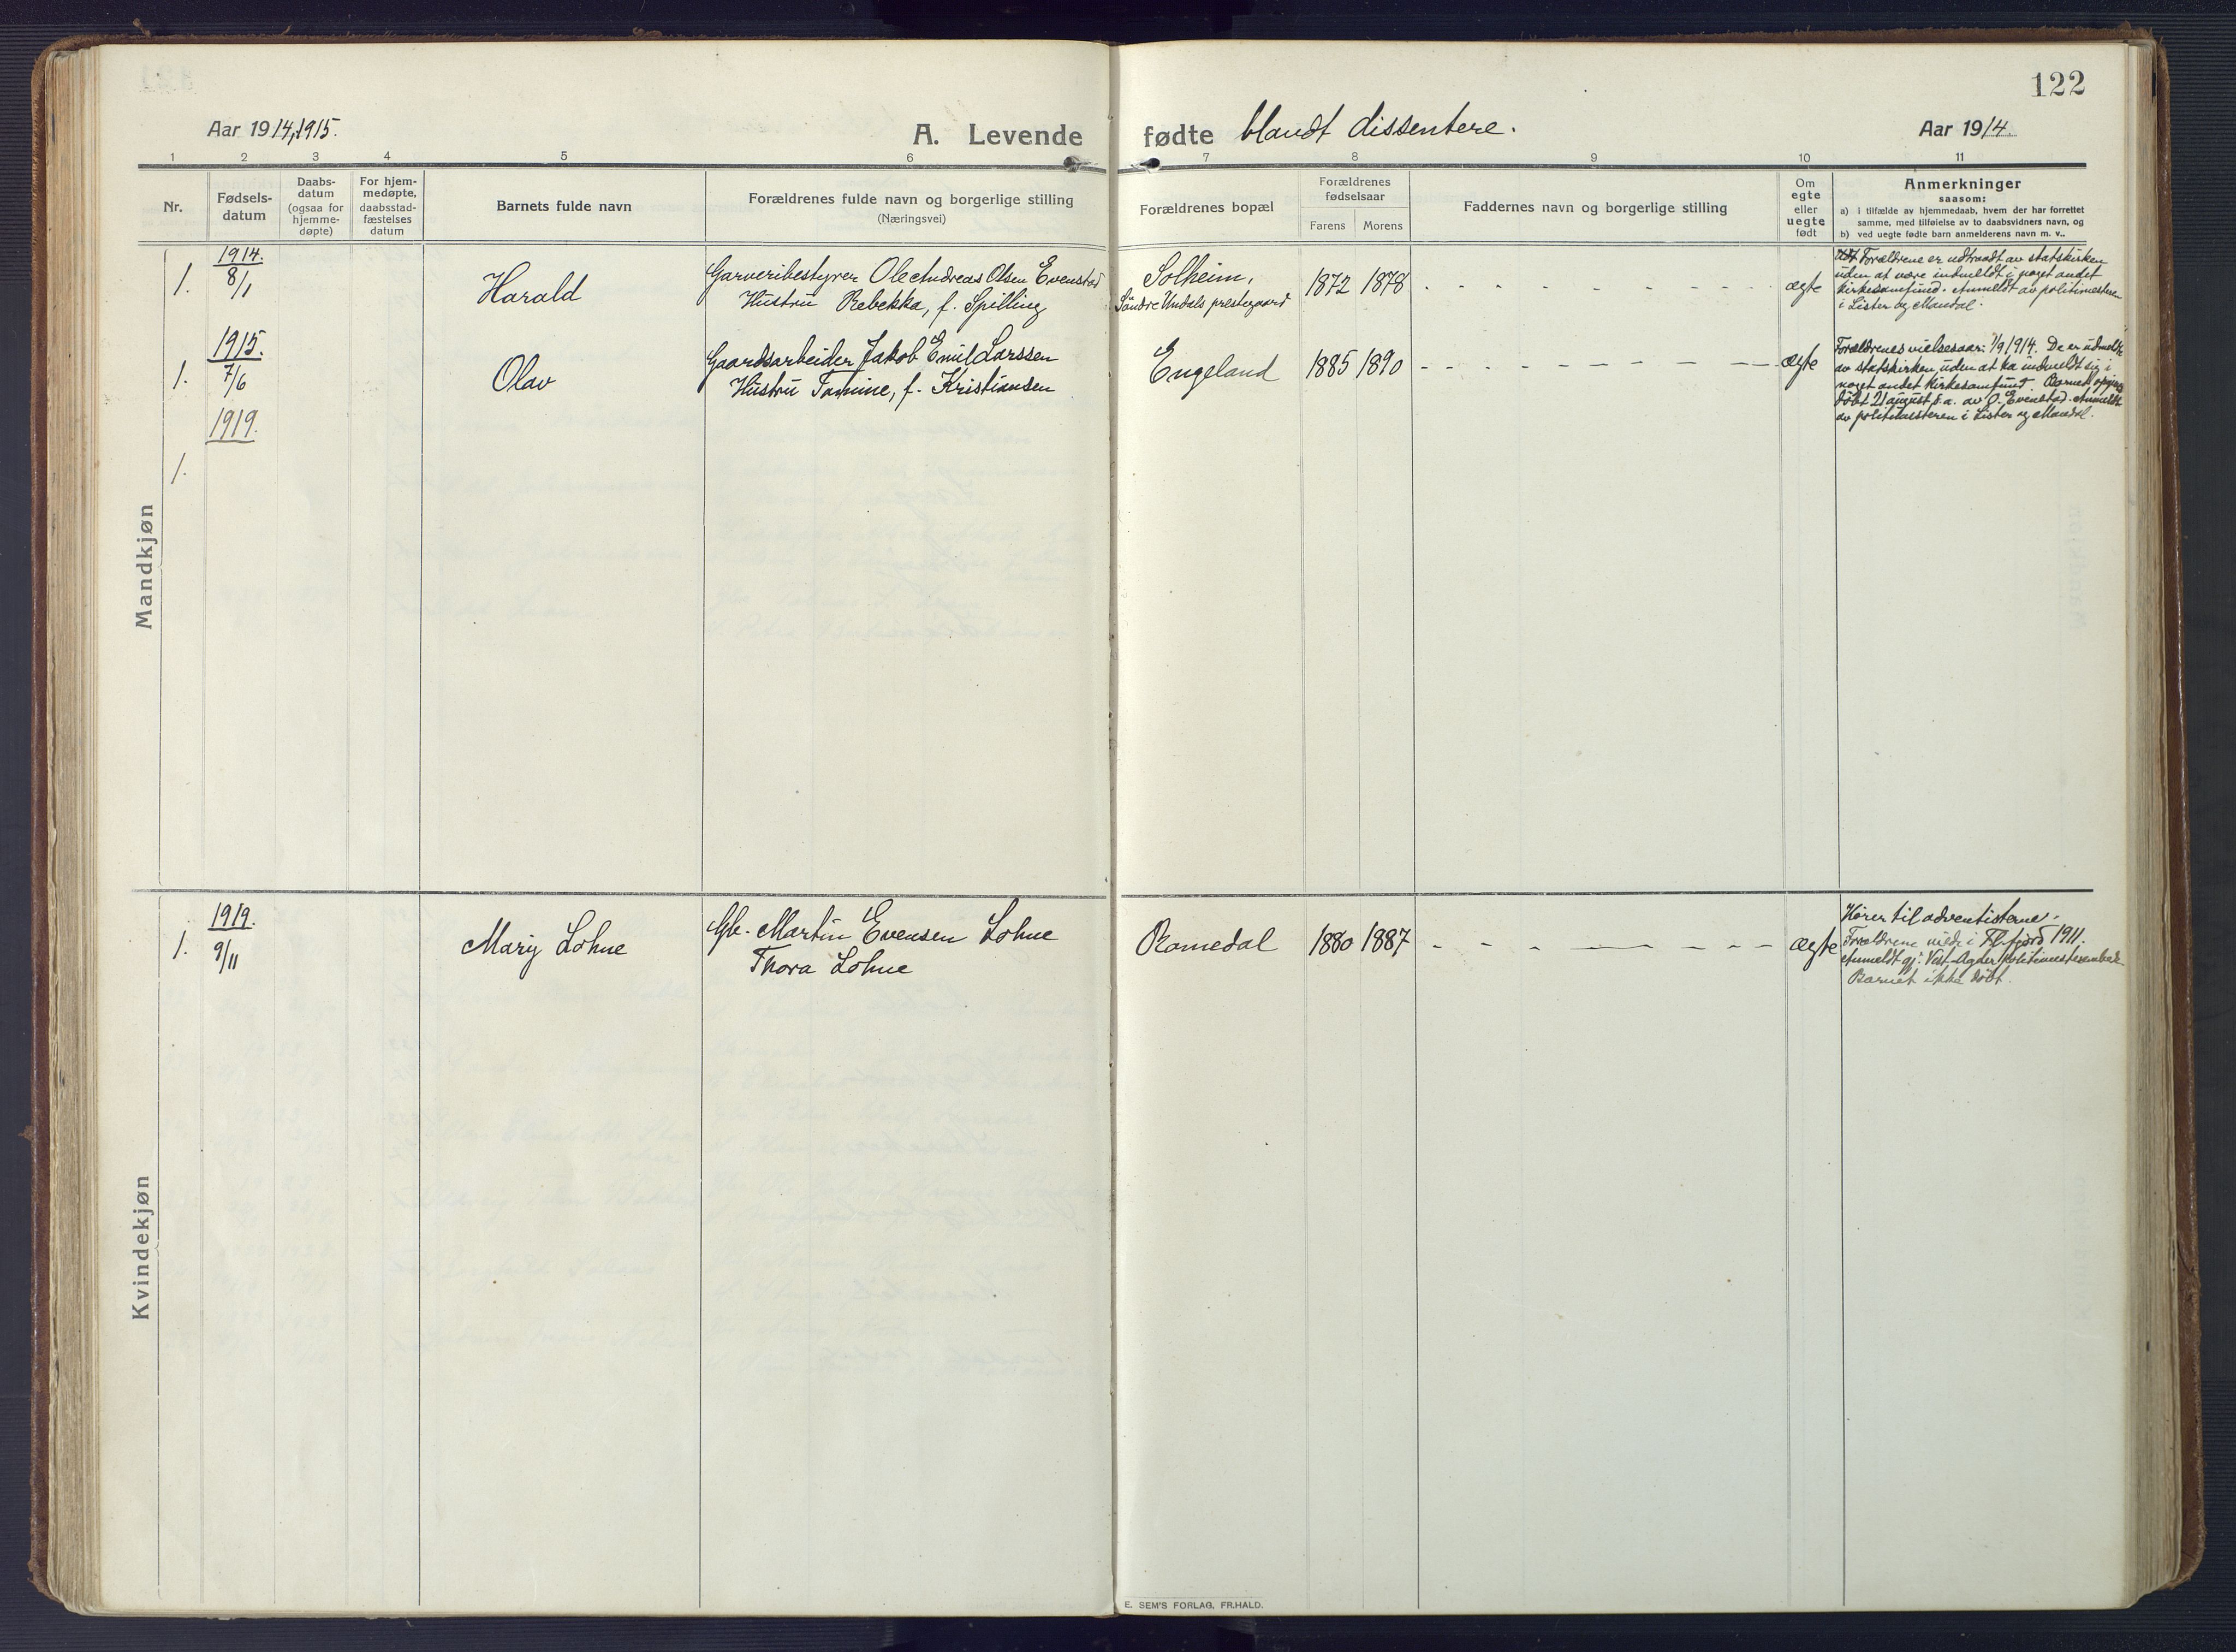 122
Aar 1914, 1915.
A. Levende fødte blandt dissentere.
Aar 1914.
1 2 3 4 5 6 7 8 9 10 11
Nr.
Fødsels-
datum
Daabs-
datum
(ogsaa for
hjemme-
døpte)
For hjem-
medøpte,
daabsstad-
fæstelses
datum
Barnets fulde navn
Forældrenes fulde navn og borgerlige stilling
(Næringsvei)
Forældrenes bopæl
Forældrenes
fødselsaar
Farens Morens
Faddernes navn og borgerlige stilling
Om
egte
eller
uegte
født
Anmerkninger
saasom:
a) i tilfælde av hjemmedaab, hvem der har forrettet
samme, med tilføielse av to daabsvidners navn, og
b) ved uegte fødte barn anmelderens navn m. v..
Mandkjøn
1914.
1. 8/1
Harald
Garveribestyrer Ole Andreas Olsen Evenstad
Hustru Rebekka, f. Spilling
Solheim,
Søndre Undals prestegaard
1872 1878
ægte
Forældrene er udtraadt av statskirken
uden at være indmeldt i noget andet
kirkesamfund. Anmeldt av politimesteren
i Lister og Mandal.
1915.
1. 7/6
Olav
Gaardsarbeider Jakob Emil Larssen
Hustru Tomine, f. Kristiansen
Engeland
1885 1890
ægte
Forældrenes vielsesaar: 1/9 1914. De er udmeldt
av statskirken, uden at ha indmeldt sig i
noget andet kirkesamfund. Barnet opgives
døbt 21 august s.a. av O. Evenstad. Anmeldt
av politimesteren i Lister og Mandal.
1919.
1.
Kvindekjøn
1919.
1. 9/11
Mary Lohne
Gb. Martin Evensen Lohne
Thora Lohne
Romedal
1880 1887
ægte
Hører til adventisterne.
Forældrene viede i 1911.
Anmeldt gj. Vest-Agder politimesterembede
Barnet ikke døbt.
E. SEM'S FORLAG, FR.HALD.